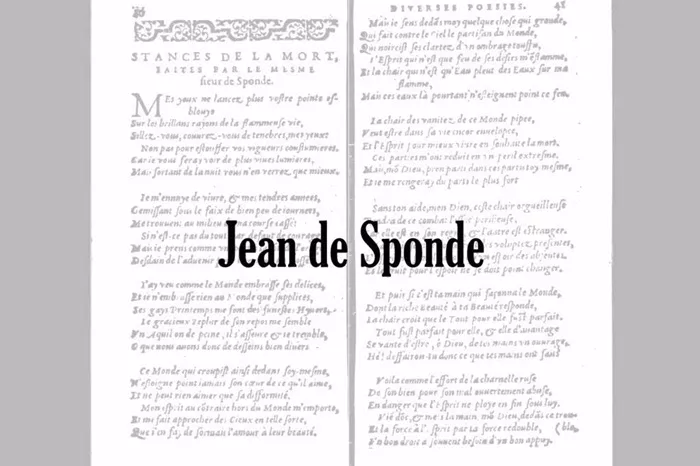 STANCES DE LA MORT,
FAITES PAR LE MESME
sieur de Sponde.
MEs yeux ne lancez plus vostre pointe es-
blouye
Sur les brillans rayons de la flammeuse vie,
Sillez-vous, couurez-vous de tenebres, mes yeux:
Non pas pour estouffer vos vigueurs coustumieres,
Car ie vous feray voir de plus viues lumieres,
Mais sortant de la nuict vous n'en verrez que mieux.
Ie m'ennuye de viure, & mes tendres années,
Gemissant sous le faix de bien peu de iournées,
Me trouuent au milieu de ma course cassé:
Si n'est-ce pas du tout par defaut de courage
Mais ie prens comme vn
Desdain de l'aduenir p
I'ay veu comme le Monde embrasse ses delices,
Et ie n'embrasse rien au Monde que supplices,
Ses gays Printemps me sont des funestes Hyuers,
Le gracieux Zephir de son repos me semble
Vn Aquilon de peine, il s'asseure & ie tremble,
O que nous auons donc de desseins bien diuers
Ce Monde qui croupist ainsi dedans soy-mesme,
N'esloigne point iamais son cœur de ce qu'il aime,
Et ne peut rien aimer que sa difformité.
Mon esprit au contraire hors du Monde m'emporte,
Et me fait approcher des Cieux en telle sorte,
Que i'en fay desormais l'amour à leur beauté.
DIVERSES POESIES.
Mais ie sens dedãs moy quelque chose qui gronde,
Qui fait contre le Ciel le partisan du Monde,
Qui noircist ses clartez d'vn ombrage touffu,
L'Esprit qui n'est que feu de ses desirs m'enflamme,
Et la chair qui n'est qu'Eau pleut des Eaux sur ma
flamme,
Mais ces eaux là pourtant n'esteignent point ce feu,
La chair des vanitez de ce Monde pipee,
Veut estre dans sa vie encor enuelopee,
Et l'Esprit pour mieux viure en souhaite la mort.
Ces partis m'ont reduit en vn peril extresme.
Mais, mõ Dieu, pren parti dans ces partis toy mesme,
Et ie me rengeray du parti le plus fort
Sans ton aide, mon Dieu, ceste chair orgueilleuse
Rendra de ce combat l'issue perilleuse,
elle est en son regne, & l'autre est estranger.
Et puis si c'est ta main qui façonna le Monde,
Dont la riche Beauté à ta Beauté responde,
La chair croit que le Tout pour elle fust parfait.
Tout fust parfait pour elle, & elle d'auantage
Se vante d'estre, ô Dieu, de tes mains vn ouurage,
Hé! defferois-tu donc ce que tes mains ont fait?
Voila comme l'effort de la charnelle ruse
De son bien pour son mal ouuertement abuse,
En danger que l'Esprit ne ploye en fin sous luy.
Viē dõc, & mets la main, mõ Dieu, dedãs ce trou-
Et la force à l'Esprit par ta force redouble, (ble,
Vn bon droit a souuent besoin d'vn bon appuy.
Jean de Sponde